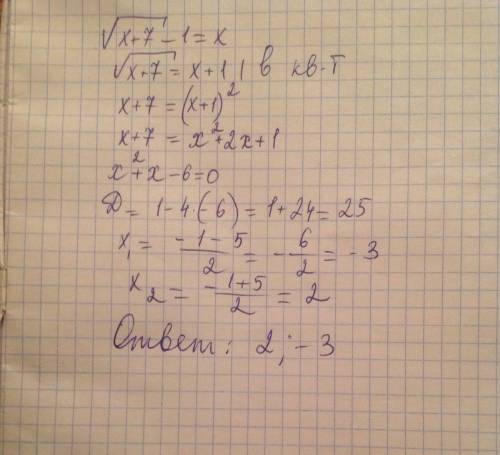 √x+7 - 1 = x
√x+7 = x+1 | в кв-т
x+7 = (x+1)²
x+7 = x²+2x+1
x²+x-6=0
D = 1-4·(-6) = 1+24 = 25
x₁ = (-1-5)/2 = -6/2 = -3
x₂ = (-1+5)/2 = 2
Ответ: 2; -3